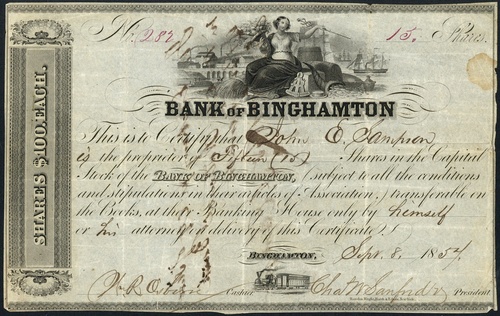 No. 287
15. Shares
SHARES $100. EACH.
BANK OF BINGHAMTON
This is to Certify that John E. Sampson
is the proprietor of Fifteen (15) Shares in the Capital
Stock of the BANK OF BINGHAMTON, subject to all the conditions
and stipulations in their articles of Association, transferable on
the Books, at their Banking House only by himself
or his attorney on delivery of this Certificate.
BINGHAMTON, Sept. 8. 1854
Cashier. President